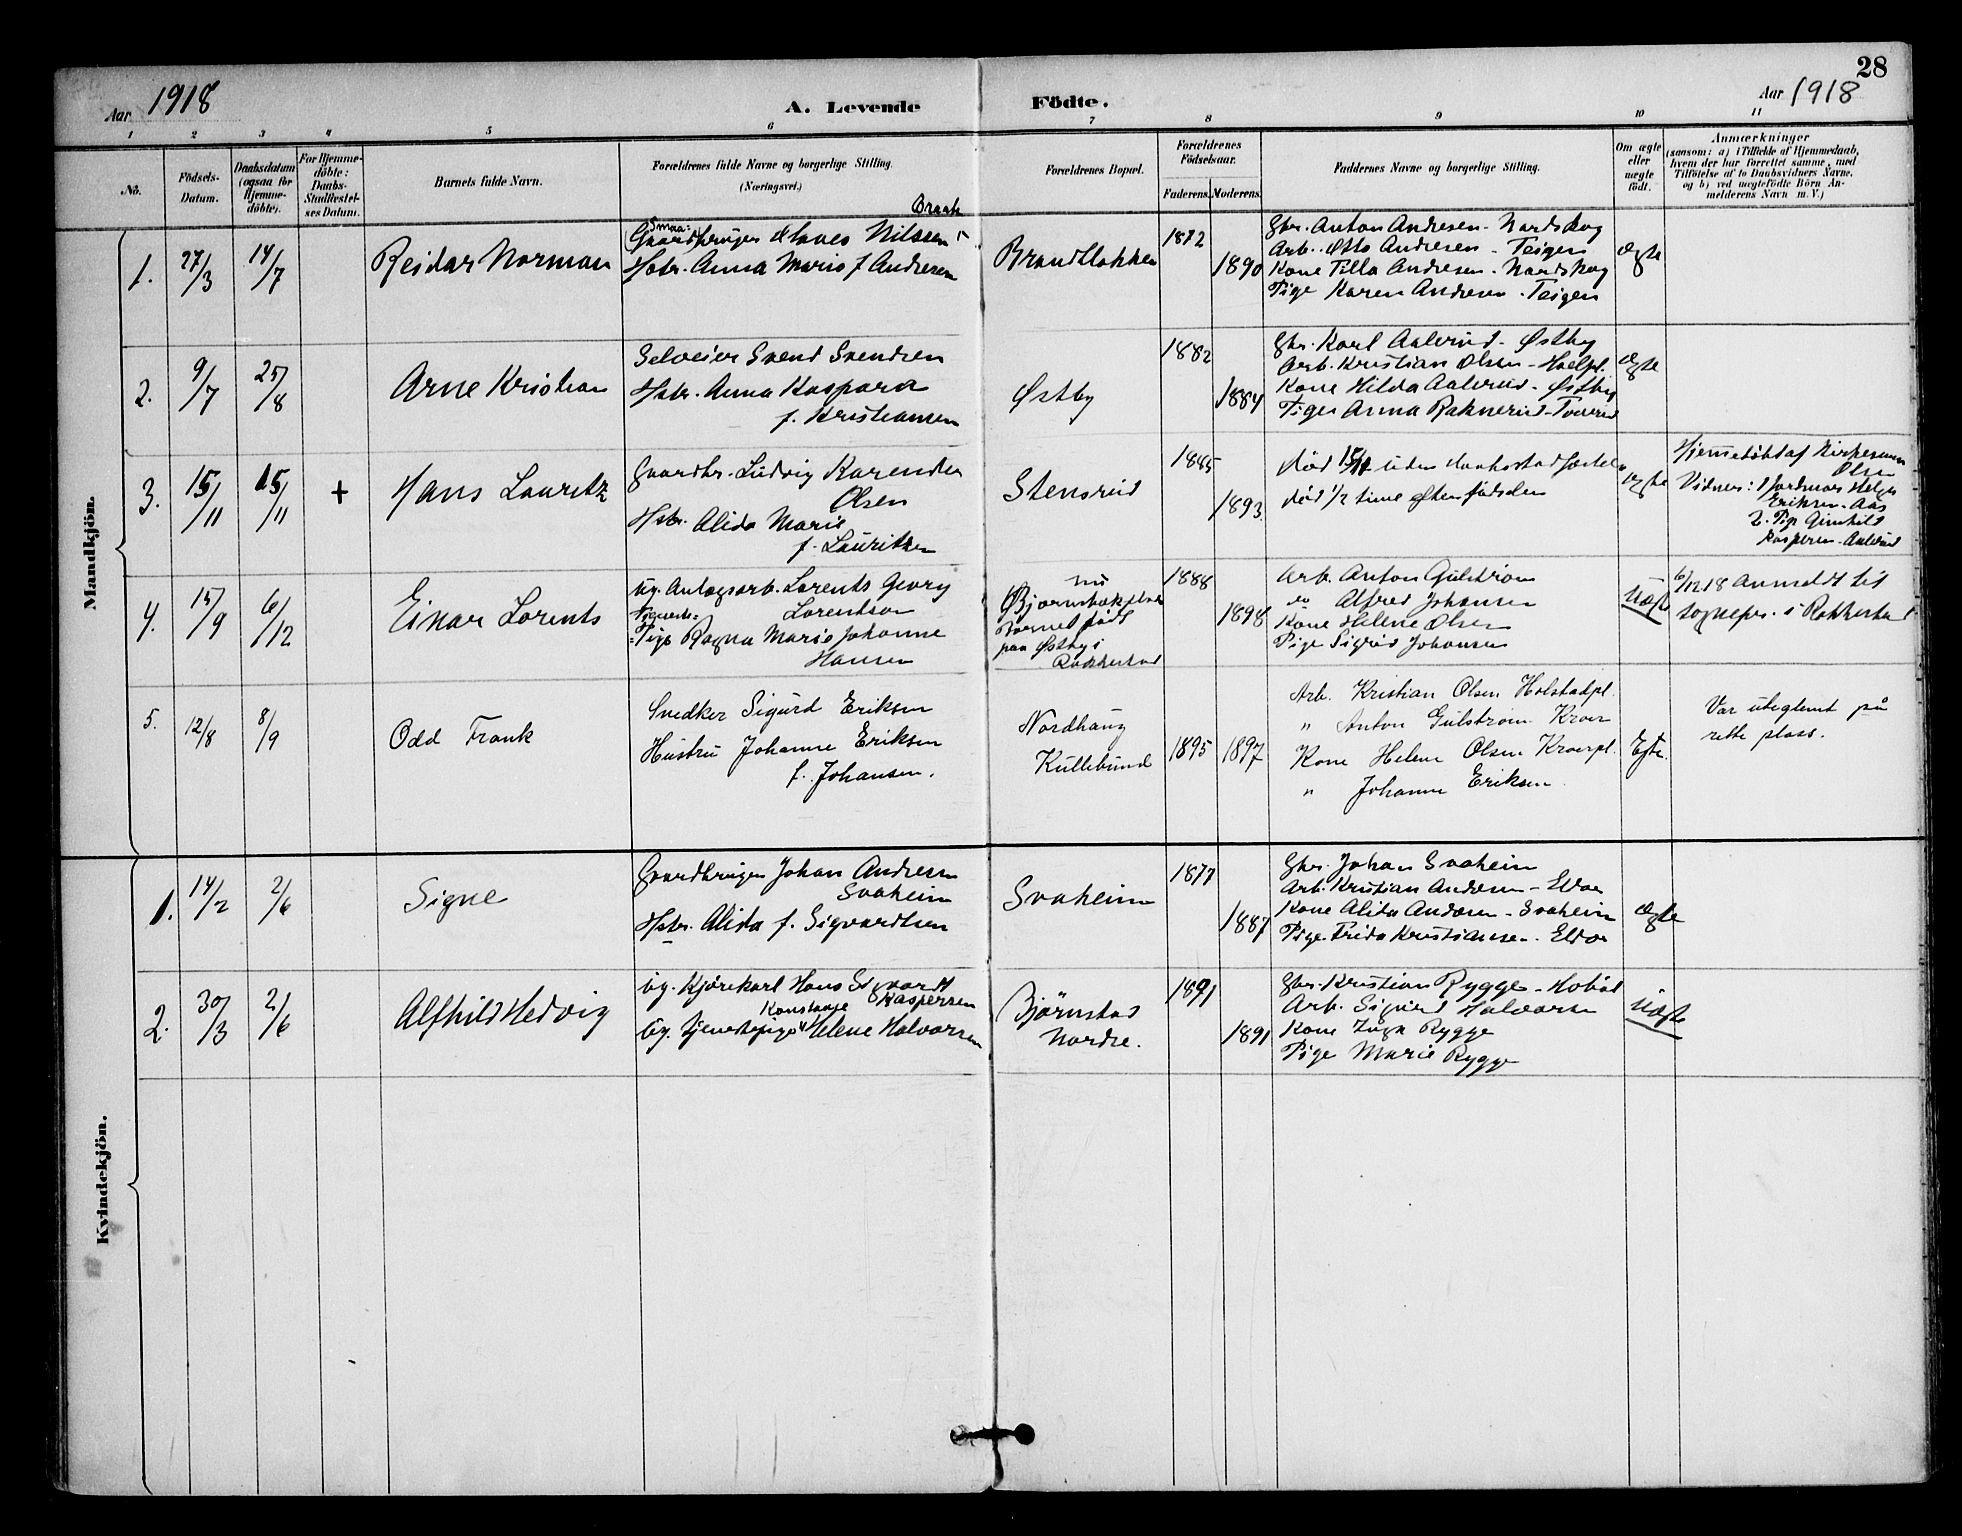 28
Aar 1918
A. Levende Födte.
Aar 1918
1 2 3 4 5 6 7 8 9 10 11
No.
Födsels-
Datum.
Daabsdatum
(ogsaa for
Hjemme-
döbte).
For Hjemme-
döbte:
Daabs-
Stadfæstel-
ses Datum.
Barnets fulde Navn.
Forældrenes fulde Navne og borgerlige Stilling.
(Næringsvei.)
Forældrenes Bopæl.
Forældrenes
Födselsaar.
Faderens. Moderens.
Faddernes Navne og borgerlige Stilling.
Om ægte
eller
uægte
födt.
Anmærkninger
(saasom: a) i Tilfælde af Hjemmedaab,
hvem der har forrettet samme, med
Tilföielse af to Daabsvidners Navne,
og b) ved uægtefödte Börn An-
melderens Navn m. V.)
Mandkjön.
1.
27/3
14/7
Reidar Norman
Braak
Smaa-
Gaardbruger Hans Nilssen
Hstr. Anna Marie f. Andresen
1872
1890
Gbr. Anton Andresen - Nordskog
Arb. Otto Andresen - Teigen
Kone Tilla Andresen - Nordskog
Pige Karen Andresen - Teigen
ægte
2.
9/7
25/8
Arne Kristian
Selveier Svend Svendsen
Hstr. Anna Kaspara
f. Kristiansen
Østby
1882
1884
Gbr. Karl Aalerud - Østby
Arb. Kristian Olsen
Kone Hilda Aalerud - Østby
Pige Anna Raknerud
ægte
3.
15/11
15/11
+
Hans Lauritz
Gaardbr. Ludvig Karendus
Olsen
Hstr. Alida Marie
f. Lauritsen
Stensrud
1885
1893
død 15/11 uden daabsstadfæstelse
død 1/2 time efter fødselen
ægte
Hjemmedøbt af Kirkesanger
Olsen
Vidner: 1 Jordmor Helga
Eriksen - Aas
2. Pige Gunhild
Kaspersen - Aalerud
4.
15/9
6/12
Einar Lorents
Ug. Anlægsarb. Lorents Georg
Lorentson
Pige Ragna Marie Johanne
Hansen
nu
Barnet født
paa Østby i
Rakkestad
1888
1898
Arb. Anton Gulstrøm
do Alfred Johansen
Kone Helene Olsen
Pige Sigrid Johansen
Uægte
6/12 18 anmeldt til
sognepr. i Rakkestad
5.
12/8
8/9
Odd Frank
Snedker Sigurd Eriksen
Hustru Johanne Eriksen
f. Johansen.
Nordhaug
Kullebund
1895
1897
Arb. Kristian Olsen Holstadpl.
" Anton Gulstrøm Kroer
Kone Helene Olsen Kroerpl.
" Johanne Eriksen
Egte.
Var uteglemt på
rette plass.
Kvindekjön.
1.
14/2
2/6
Signe
Gaardbruger Johan Andresen
Svaheim
Hstr. Alida f. Sigvardtsen
Svaheim
1877
1887
Gbr. Johan Svaheim
Arb. Kristian Andersen - Eldor
Kone Alida Andresen - Svaheim
Pige Frida Kristiansen - Eldor
ægte
2.
30/3
2/6
Alfhild Hedvig
Ug. Kjørekarl Hans Sigvardt
Kaspersen
Konstanse
Ug. tjenestepige Helene Halvorsen
Bjørnstad
Nordre.
1891
1891
Gbr. Kristian Rygge - Hobøl
Arb. Sigurd Halvorsen
Kone Inga Rygge
Pige Marie Rygge
Uægte